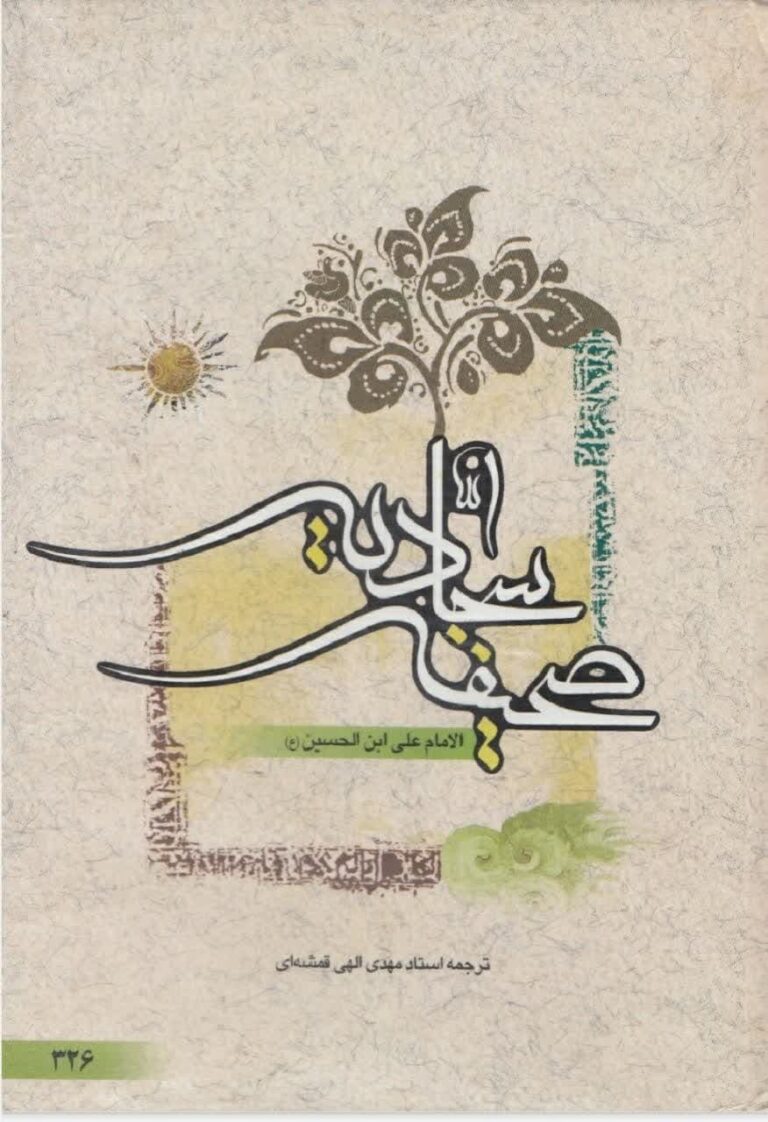 صحیفه
سجادیه
الامام علی ابن الحسین (ع)
ترجمه استاد مهدی الهی قمشه‌ای
۳۲۶